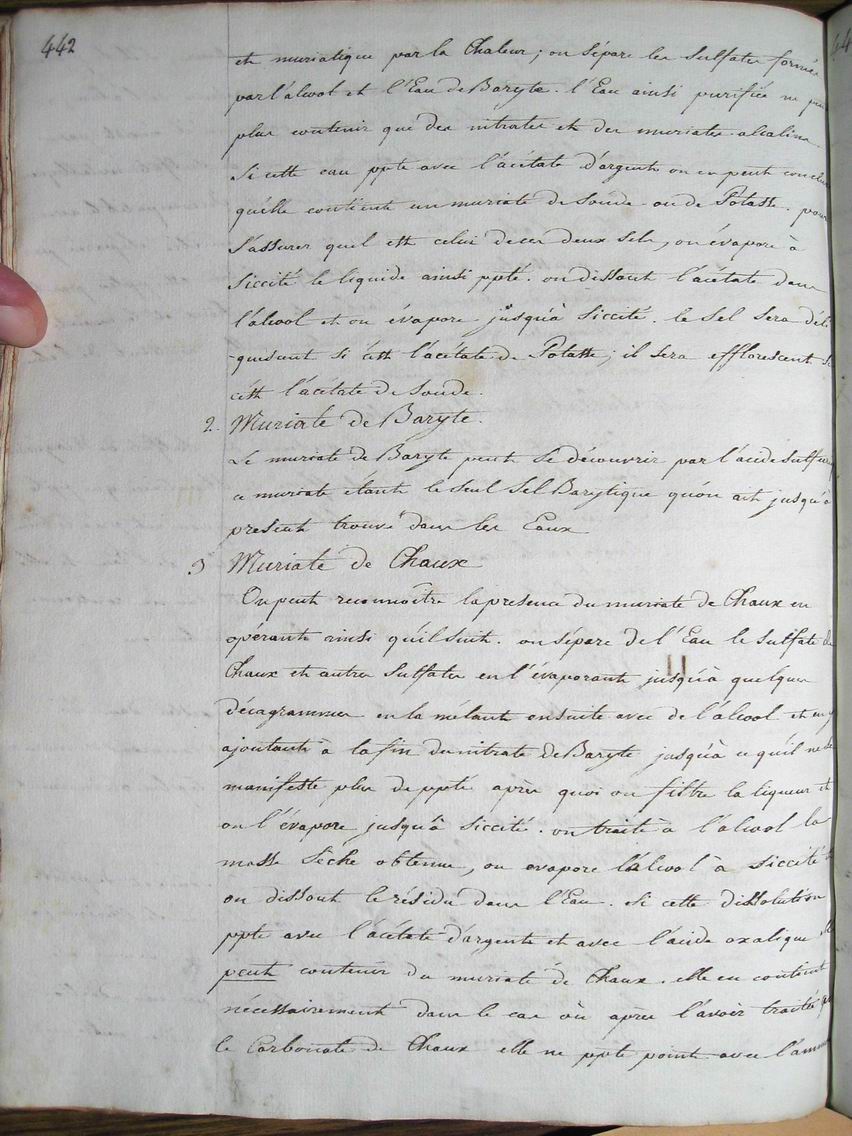 442
et muriatique par la Chaleur ; on sépare les sulfates formés
par l'alcool et l'Eau de Baryte. l'Eau ainsi purifiée ne peut
plus contenir que des nitrates et des muriates alcalins.
Si cette eau ppte avec l'acétate d'argent on en peut conclure
quelle contient un muriate de soude ou de Potasse. pour
s'assurer quel est celui de ces deux sels, on évapore à
siccité le liquide ainsi ppté. on dissout l'acétate dans
l'alcool et on évapore jusqu'à siccité. le sel sera déli
quescent si c'est l'acétate de Potasse ; il sera efflorescent si
c'est l'acétate de soude.
2. Muriate de Baryte.
Le muriate de Baryte peut se découvrir par l'acide sulfurique
ce muriate étant le seul Sel Barytique qu'on ait jusqu'à
present trouvé dans les Eaux
3 Muriate de Chaux
On peut reconnoître la presence du muriate de Chaux en
opérant ainsi qu'il suit. on sépare de l'Eau le sulfate de
Chaux et autres sulfates en l'évaporant jusqu'à quelques
décagrammes en la mélant ensuite avec de l'alcool et en y
ajoutant à la fin du nitrate de Baryte jusqu'à ce qu'il ne se
manifeste plus de ppté après quoi on filtre la liqueur et
on l'évapore jusqu'à siccité. on traite à l'alcool la
masse sèche obtenue, on evapore l'alcool à siccité
on dissout le résidu dans l'Eau. Si cette dissolution
ppte avec l'acétate d'argent et avec l'acide oxalique elle
peut contenir du muriate de Chaux. elle en contient
nécessairement dans le cas où après l'avoir traitée par
le Carbonate de Chaux elle ne ppte point avec l'ammo